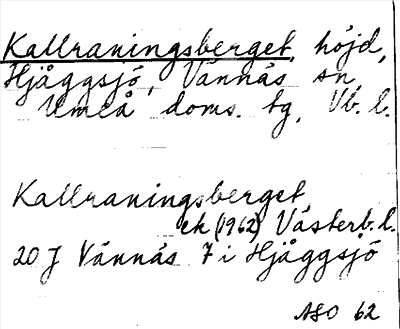 Kallraningsberget, höjd,
Hjåggsjö, Vännäs sn,
Umeå doms. tg, Vb. l.
Kallraningsberget,
ek (1962) Västerb. l.
20 J Vännäs 7 i Hjåggsjö
ASO 62